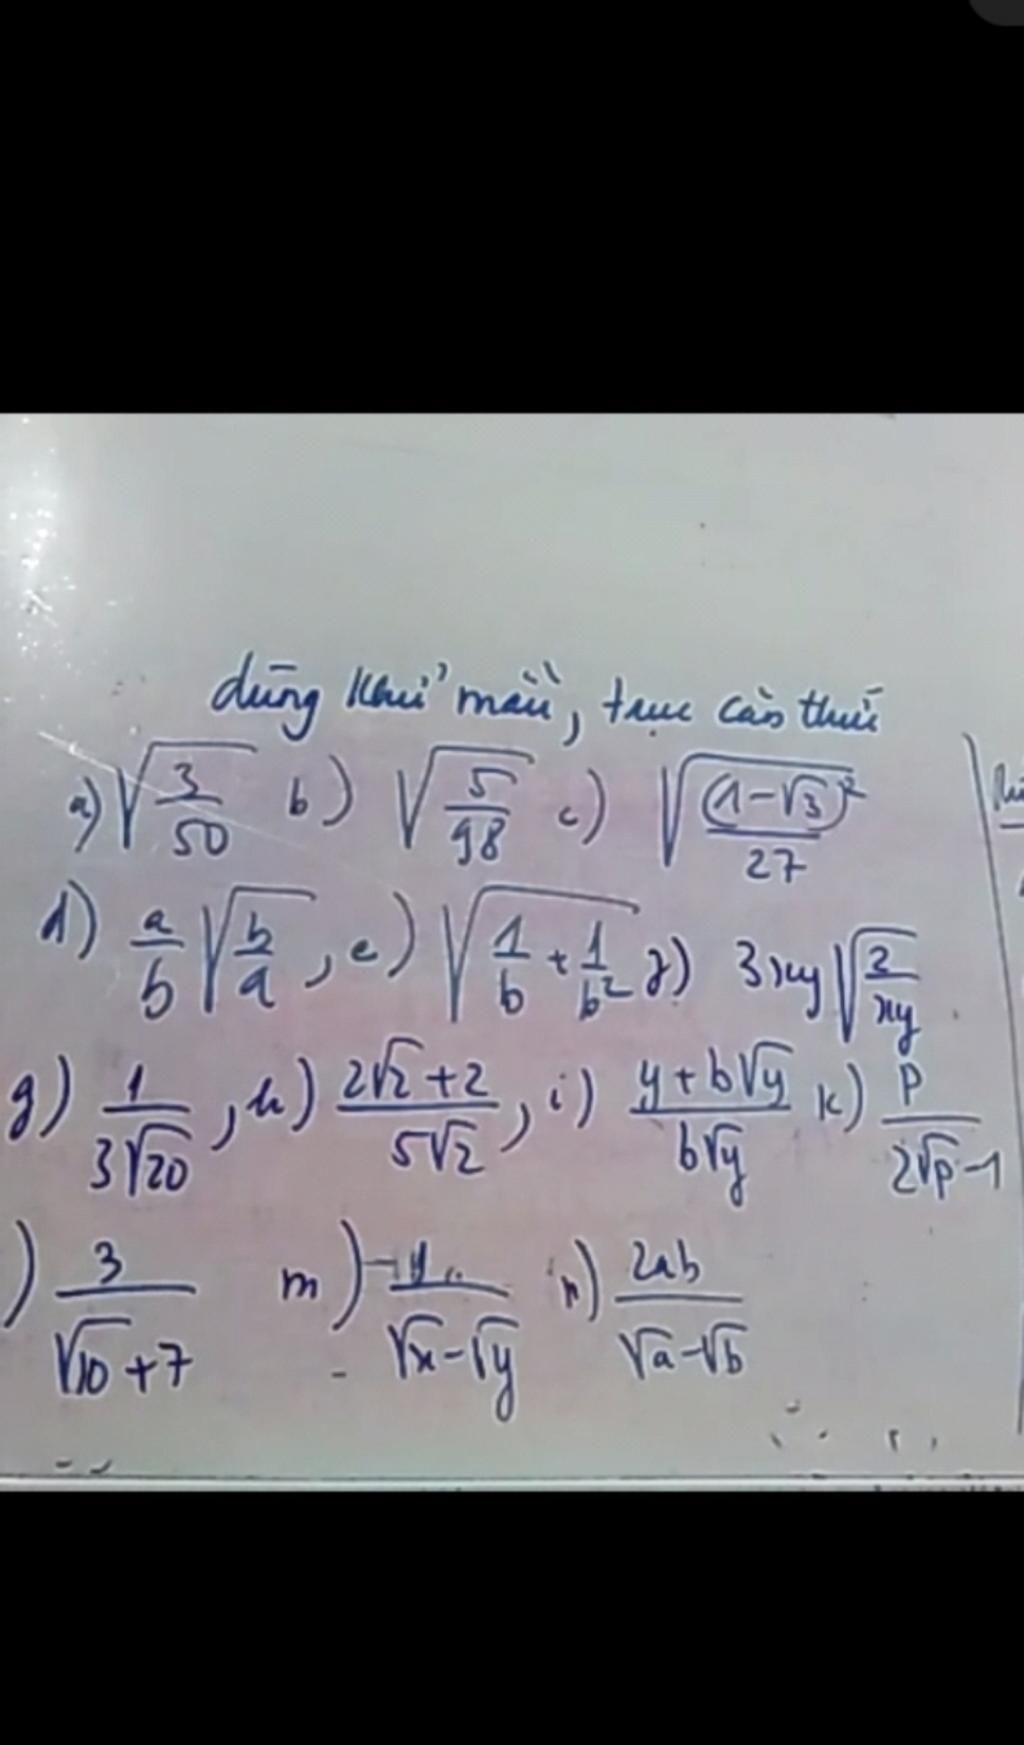 dùng khử mẫu, trục căn thức
a) √(3/50) b) √(5/98) c) √((1-√3)²/27)
d) a/b √(b/a), e) √(1/b + 1/b²) f) 3xy √(2/xy)
g) 1/(3√20), h) (2√2+2)/(5√2), i) (y+b√y)/(b√y) k) p/(2√p-1)
) 3/(√10+7) m) /(√x-√y) n) 2ab/(√a-√b)